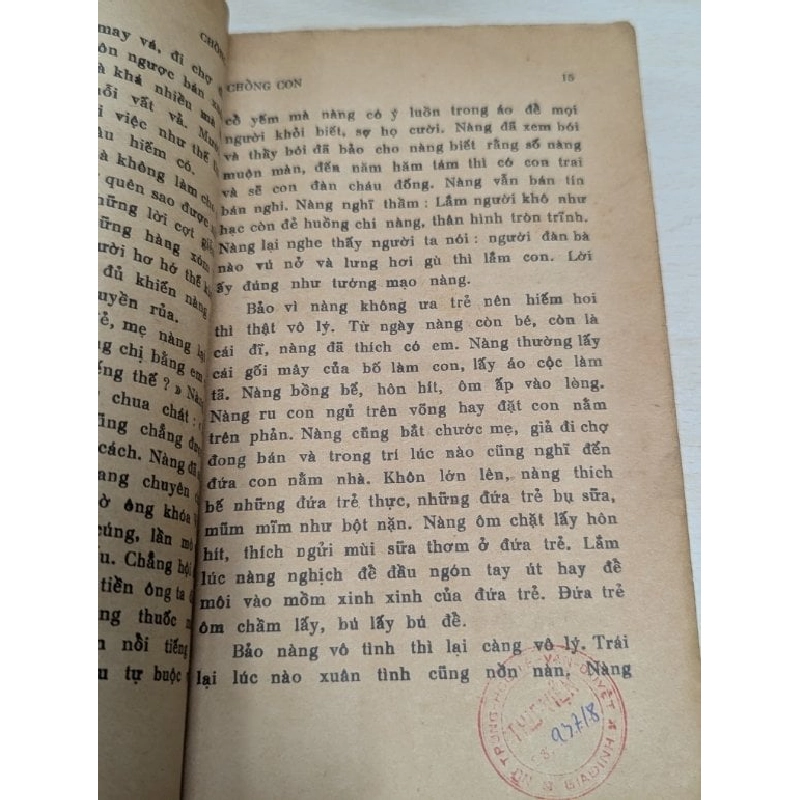 may vá, đi chợ
ngược bán
khá nhiều
vất vả.
việc như thế
hiếm có.
không làm
quên sao được
những lời cợt
hàng xóm
hơ hớ thế
đủ khiến nàng
rủa.
mẹ nàng lại
chị bằng em
thế ? »
chua chát :
cũng chẳng
cách. Nàng
chuyên
ông khóa
cúng, lần
Chẳng
tiền ông ta
thuốc
nổi tiếng
tự buộc
CHỒNG CON 15
cổ yếm mà nàng có ý luồn trong áo để mọi
người khỏi biết, sợ họ cười. Nàng đã xem bói
và thầy bói đã bảo cho nàng biết rằng số nàng
muộn màn, đến năm hăm tám thì có con trai
và sẽ con đàn cháu đống. Nàng vẫn bán tín
bán nghi. Nàng nghĩ thầm : Lắm người khô như
hạc còn đẻ huống chi nàng, thân hình tròn trĩnh.
Nàng lại nghe thấy người ta nói : người đàn bà
nào vú nở và lưng hơi gù thì lắm con. Lời
ấy đúng như tướng mạo nàng.
Bảo vì nàng không ưa trẻ nên hiếm hoi
thì thật vô lý. Từ ngày nàng còn bé, còn là
cái đĩ, nàng đã thích có em. Nàng thường lấy
cái gối mây của bố làm con, lấy áo cộc làm
tã. Nàng bồng bế, hôn hít, ôm ấp vào lòng.
Nàng ru con ngủ trên võng hay đặt con nằm
trên phản. Nàng cũng bắt chước mẹ, giả đi chợ
đong bán và trong trí lúc nào cũng nghĩ đến
đứa con nằm nhà. Khôn lớn lên, nàng thích
bế những đứa trẻ thực, những đứa trẻ bụ sữa,
mũm mĩm như bột nặn. Nàng ôm chặt lấy hôn
hít, thích ngửi mùi sữa thơm ở đứa trẻ. Lắm
lúc nàng nghịch để đầu ngón tay út hay để
môi vào mồm xinh xinh của đứa trẻ. Đứa trẻ
ôm chầm lấy, bú lấy bú để.
Bảo nàng vô tình thì lại càng vô lý. Trái
lại lúc nào xuân tình cũng nồn nàn. Nàng
THƯ VIỆN
GIA ĐỊNH